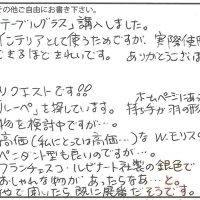 その他ご自由にお書き下さい。
テーブルグラス」購入しました。
インテリアとして使うためですが、実際使用
できるほどきれいです。 ありがとうござ
リクエストです!!
ホームページにあ
ルーペ」を探しています。 持ち手が羽の形
物を検討中ですが…。
高価(私にとっては高価…)な W.モリス
ペンダント型も良いのですが…。
フランチェスコ・ルビナート社製の銀色で
おしゃれな物があったらなぁ…と。
で聞いたら既に廃番だそうです。